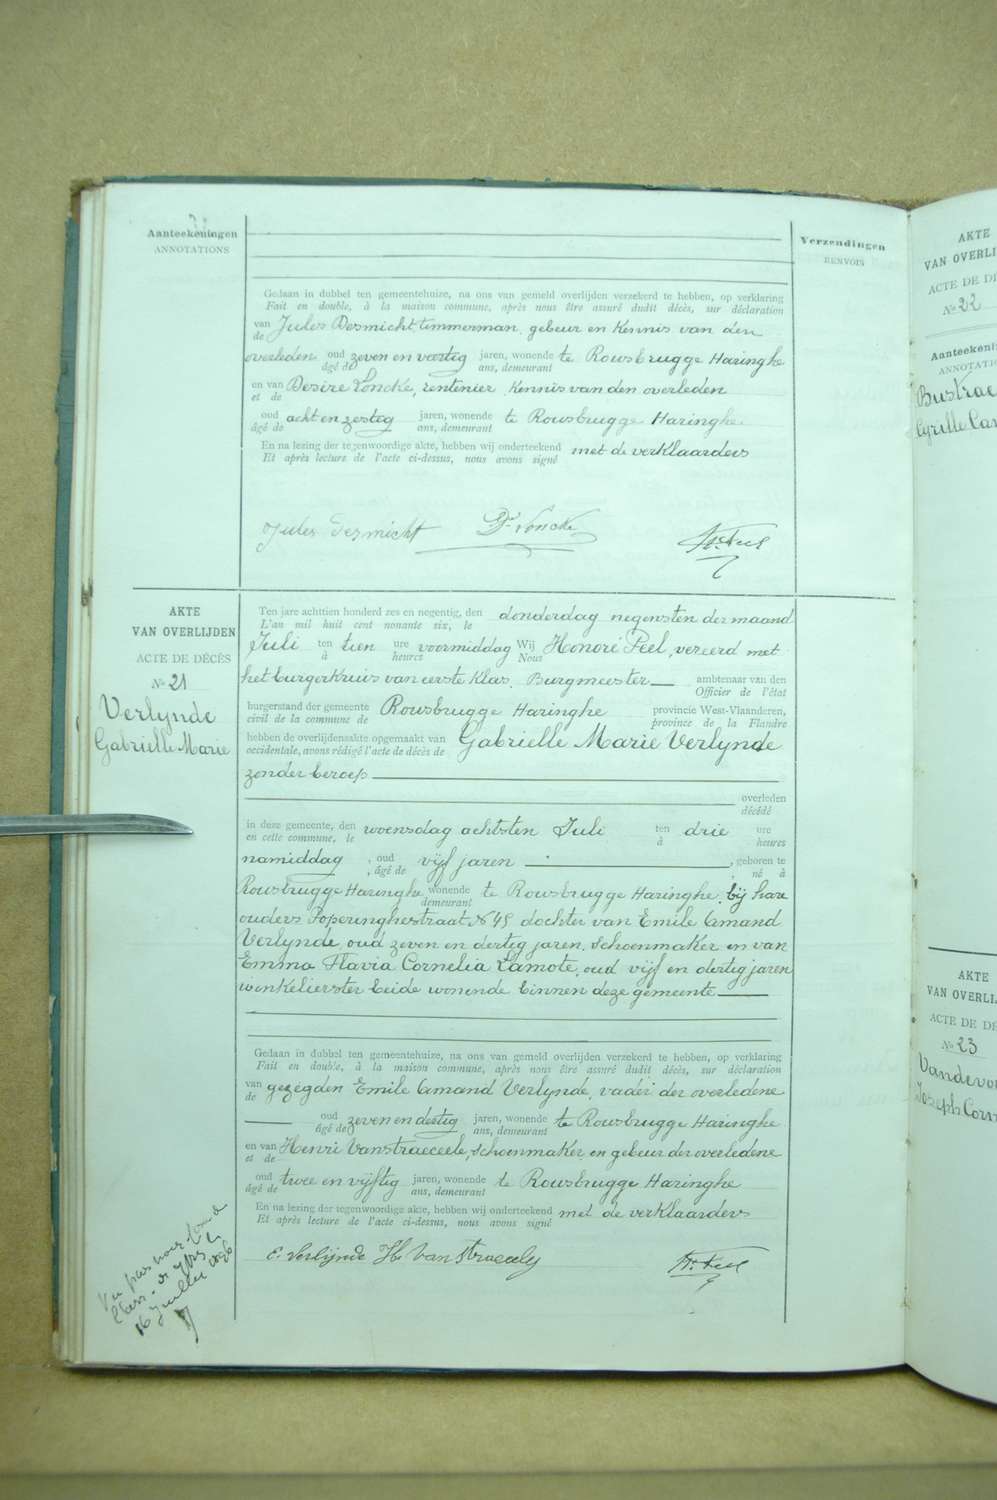 Aanteekeningen
ANNOTATIONS
Verzendingen
RENVOIS
Gedaan in dubbel ten gemeentehuize, na ons van gemeld overlijden verzekerd te hebben, op verklaring
Fait en double, à la maison commune, après nous être assuré dudit décès, sur déclaration
van Jules Desmicht timmerman, gebeur en kennis van den
de
overleden oud zeven en veertig jaren, wonende te Rousbrugge Haringhe
âgé de ans, demeurant
en van Desiré Loncke, rentenier kennis van den overleden
et de
oud acht en zestig jaren, wonende te Rousbrugge Haringhe
âgé de ans, demeurant
En na lezing der tegenwoordige akte, hebben wij onderteekend met de verklaarders
Et après lecture de l'acte ci-dessus, nous avons signé
Jules Desmicht Dr Loncke Hr Peel
AKTE
VAN OVERLIJDEN
ACTE DE DÉCÈS
No 21
Verlynde
Gabrielle Marie
Ten jare achttien honderd zes en negentig, den donderdag negensten der maand
L'an mil huit cent nonante six, le
Juli ten tien ure voormiddag Wij Honoré Peel, vereerd met
à heures Nous
het burgerkruis van eerste klas, Burgmeester ambtenaar van den
Officier de l'état
burgerstand der gemeente Rousbrugge Haringhe provincie West-Vlaanderen,
civil de la commune de province de la Flandre
hebben de overlijdensakte opgemaakt van Gabrielle Marie Verlynde
occidentale, avons rédigé l'acte de décès de
zonder beroep
overleden
décédé
in deze gemeente, den woensdag achtsten Juli ten drie ure
en cette commune, le à heures
namiddag, oud vijf jaren, geboren te
, âgé de , né à
Rousbrugge Haringhe wonende te Rousbrugge Haringhe, bij hare
demeurant
ouders Poperinghestraat No 45 dochter van Emile Amand
Verlynde, oud zeven en dertig jaren, schoenmaker en van
Emma Flavia Cornelia Lamote, oud vijf en dertig jaren
winkelierster beide wonende binnen deze gemeente
Gedaan in dubbel ten gemeentehuize, na ons van gemeld overlijden verzekerd te hebben, op verklaring
Fait en double, à la maison commune, après nous être assuré dudit décès, sur déclaration
van gezegden Emile Amand Verlynde, vader der overledene
de
oud zeven en dertig jaren, wonende te Rousbrugge Haringhe
âgé de ans, demeurant
en van Henri Vanstraeceele, schoenmaker, en gebeur der overledene
et de
oud twee en vijftig jaren, wonende te Rousbrugge Haringhe
âgé de ans, demeurant
En na lezing der tegenwoordige akte, hebben wij onderteekend met de verklaarders
Et après lecture de l'acte ci-dessus, nous avons signé
E. Verlijnde H Van Straecely Hr Peel
Vu par nous
16 juillet 1896
AKTE
VAN OVERLI
ACTE DE DÉ
No 22
Aanteekeni
ANNOTATIO
Bustrae
Cyrille Cam
AKTE
VAN OVERLI
ACTE DE DÉ
No 23
Vandevo
Joseph Corn